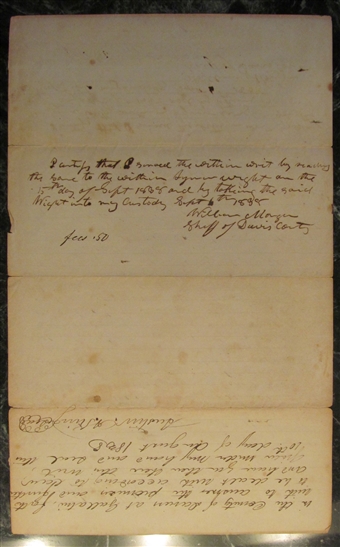 I certify that I served the within writ by reading
the same to the within Lyman Wight on the
day of Sept 1838 and by taking the said
Wight into my Custody Sept 6th 1838
William Morgan
Shff of Davis
fees .50
in the County of at Gallatin, forth
with to answer the premises and further
to be dealt with according to Law
and have you then there this writ.
Given under my hand and seal this
10th day of August 1838
Austin A. King